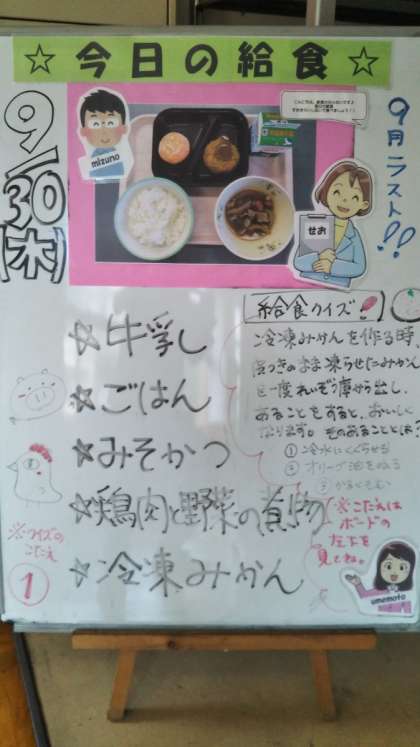 ☆今日の給食☆
9/30(木)
mizuno
せお
9月ラスト!!
☆牛乳
☆ごはん
☆みそかつ
☆鶏肉と野菜の煮物
☆冷凍みかん
給食クイズ!
冷凍みかんを作る時、
皮つきのまま凍らせたみかん
を一度れいぞう庫から出し、
あることをすると、おいしく
なります。そのあることとは?
①冷水にくぐらせる
②オリーブ油をぬる
③
※こたえは
ボードの
左下を
見てね。
※クイズの
こたえ
①
umemoto